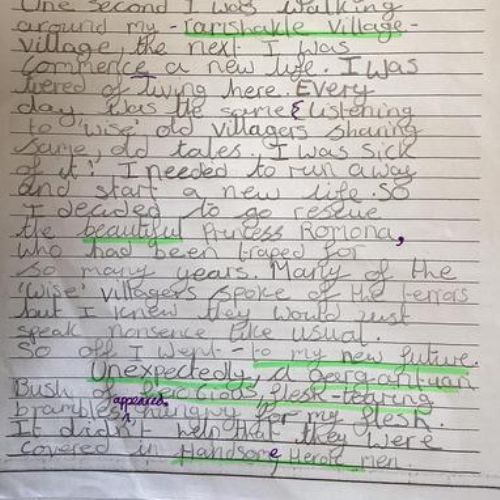 One second I was walking
around my - ramshakle village -
village, the next I was
commence a new life. I was
tiered of living here. Every
day was the same & listening
to 'wise' old villagers sharing
same, old tales. I was sick
of it! I needed to run away
and start a new life. So
I decided to go rescue
the beautiful Princess Romona,
who had been traped for
so many years. Many of the
'wise' villagers spoke of the terrors
but I knew they would just
speak nonsense like usual.
So off I went - to my new future.
Unexpectedly, a gargantuan
Bush of flesh-tearing
brambles appeared, hungry for my flesh.
It didn't help that they were
covered in Handsome Heroic men.